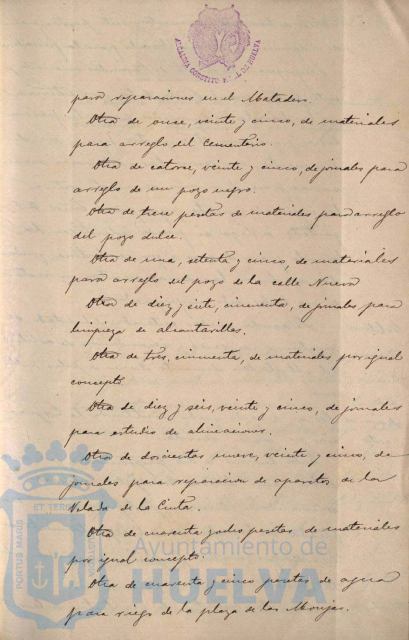 ALCALDIA CONSTITUCIONAL DE HUELVA
para reparaciones en el Matadero.
Otra de once, veinte y cinco, de materiales
para arreglo del Cementerio.
Otra de catorce, veinte y cinco, de jornales para
arreglo de un pozo negro.
Otra de trece pesetas de materiales para arreglo
del pozo dulce.
Otra de una, setenta y cinco, de materiales
para arreglo del pozo de la calle Nueva
Otra de diez y siete, cincuenta, de jornales para
limpieza de alcantarillas.
Otra de tres, cincuenta, de materiales por igual
concepto.
Otra de diez y seis, veinte y cinco, de jornales
para estudio de alineaciones.
Otra de doscientas nueve, veinte y cinco, de
jornales para reparacion de aparatos de la
Velada de la Cinta.
Otra de cuarenta y ocho pesetas de materiales
por igual concepto.
Otra de cuarenta y cinco pesetas de agua
para riego de la plaza de las Monjas.
PORTUS MARIS ET TERRE
Ayuntamiento de
HUELVA